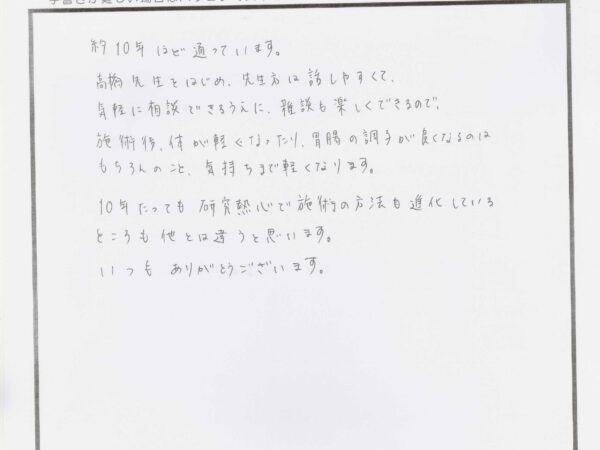 約10年ほど通っています。
高橋先生をはじめ、先生方は話しやすくて、
気軽に相談できるうえに、雑談も楽しくできるので、
施術後、体が軽くなったり、胃腸の調子が良くなるのは
もちろんのこと、気持ちまで軽くなります。
10年たっても研究熱心で施術の方法も進化している
ところも他とは違うと思います。
いつもありがとうございます。